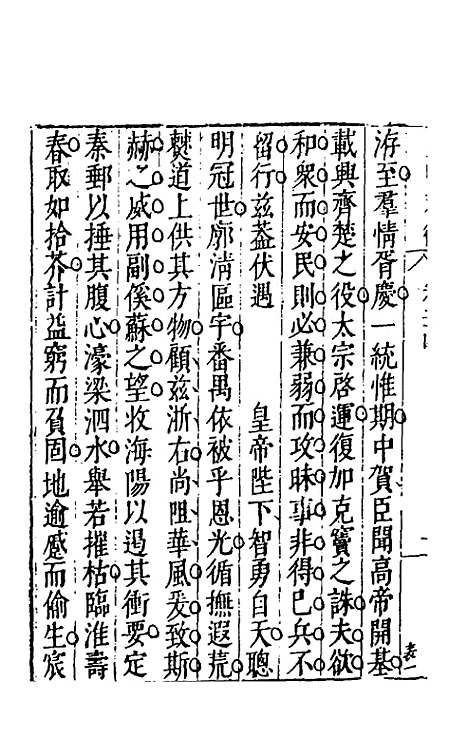 洊至羣情胥慶一統惟期中賀臣聞高帝開基
載興齊楚之役太宗啓運復加克竇之誅夫欲
和衆而安民則必兼弱而攻昧事非得已兵不
留行茲蓋伏遇　　皇帝陛下智勇自天聰
明冠世廓淸區宇番禺依被乎恩光循撫遐荒
僰道上供其方物顧茲浙右尚阻華風爰致斯
赫之威用副傒蘇之望收海陽以遏其衝要定
秦郵以捶其腹心濠梁泗水舉若摧枯臨淮壽
春取如拾芥計益窮而負固地逾蹙而偷生宸
表一